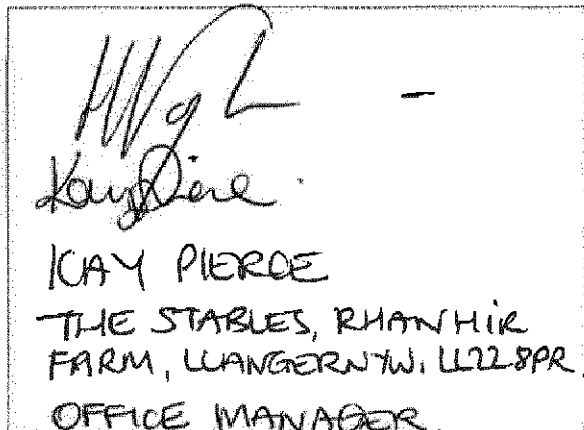 Kay Pierce.
KAY PIERCE
THE STABLES, RHANHIR
FARM, LLANGERNYW. LL22 8PR
OFFICE MANAGER.